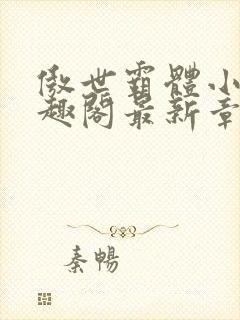 傲世霸體小
趣閣最新章
秦暢